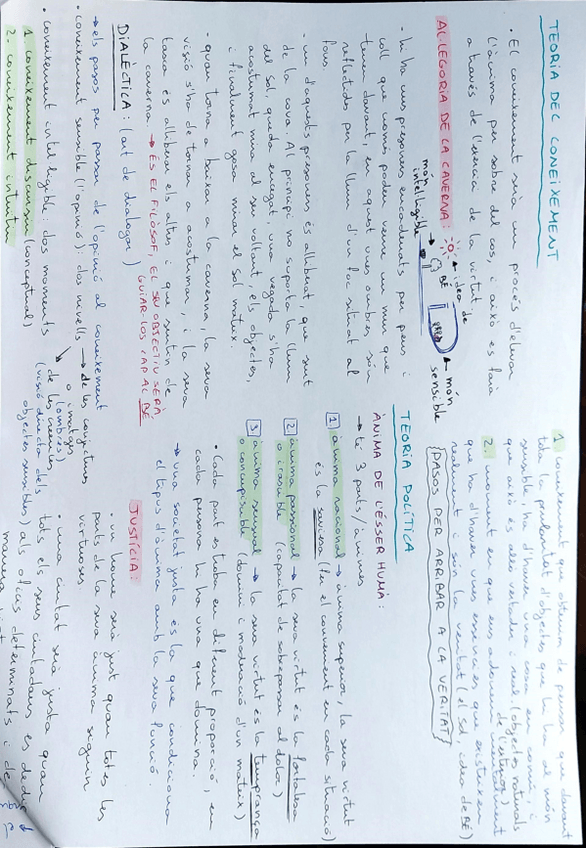 TEORIA DEL CONEIXEMENT
• El coneixement seria un procés d'elevar
l'ànima per sobre del cos, i això es faria
a través de l'exercici de la virtut.
AL·LEGORIA DE LA CAVERNA:
món
intel·ligible
idea de
BÉ
món
sensible
- hi ha uns presoners encadenats per peus i
coll que només poden veure un mur que
tenen davant, en aquest unes ombres són
reflectides per la llum d'un foc situat al
fons
- un d'aquests presoners és alliberat, que surt
de la cova. Al principi no suporta la llum
del sol, queda encegat, una vegada s'ha
acostumat mira al seu voltant, els objectes,
i finalment gosa mirar el sol mateix.
- quan torna a baixar a la caverna, la seva
visió s'ha de tornar a acostumar, i la seva
tasca és alliberar els altres i que surtin de
la caverna → ÉS EL FILÒSOF, EL SEU OBJECTIU SERÀ
GUIAR-LOS CAP AL BÉ
DIALÈCTICA: (art de dialogar)
→ els passos per passar de l'opinió al coneixement
• coneixement sensible (l'opinió): dos nivells → de les conjectures
o imatges
(ombres)
→ de les creences
(visió directa dels
objectes sensibles)
• coneixement intel·ligible: dos moments
1. coneixement discursiu (conceptual)
2. coneixement intuïtiu
1. coneixement que obtenim de pensar que davant
tota la pluralitat d'objectes que hi ha al món
sensible, ha d'haver una cosa en comú, i
que això és allò vertader i real (objectes naturals
2. moment en que ens adonem mentalment
que ha d'haver unes essències que existeixen
realment i són la veritat (el sol, idea de BÉ)
{PASOS PER ARRIBAR A LA VERITAT}
TEORIA POLÍTICA
ÀNIMA DE L'ÉSSER HUMÀ:
→ té 3 parts/ànimes
1 ànima racional → ànima superior, la seva virtut
és la saviesa (fer el convenient en cada situació)
2 ànima passional → la seva virtut és la fortalesa
o irascible (capacitat de sobreposar al dolor)
3 ànima sensual → la seva virtut és la temprança
o concupiscible (domini i moderació d'un mateix)
• Cada part es troba en diferent proporció, en
cada persona hi ha una que domina.
→ una societat justa és la que condiciona
el tipus d'ànima amb la seva funció.
JUSTÍCIA:
• un home serà just quan totes les
parts de la seva ànima siguin
virtuoses.
• una ciutat serà justa quan
tots els seus ciutadans es dediquin
als oficis determinats i de
manera